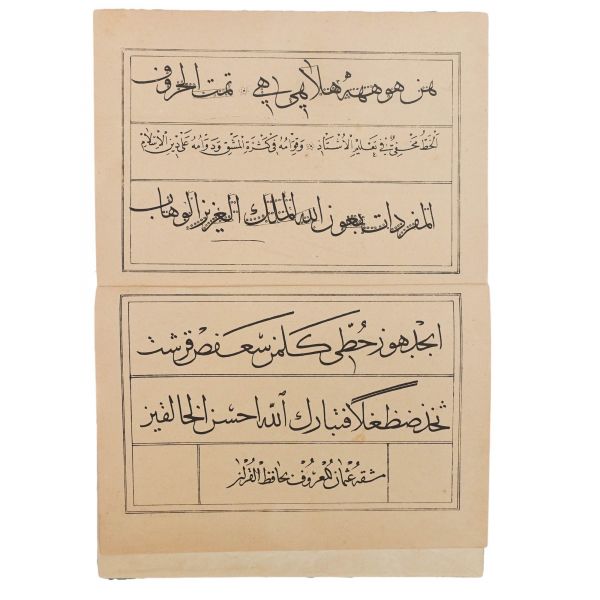 هن هو هه هلا هي ي هي تمت الحروف
الخط مخفي في تعليم الأستاذ وقوامه في كثرة المشق ودوامه على دين الإسلام
المفردات بعون الله الملك العزيز الوهاب
ابجد هوز حطي كلمن سعفص قرشت
ثخذ ضظغلا فتبارك الله احسن الخالقين
مشقه عثمان المعروف بحافظ القرآن